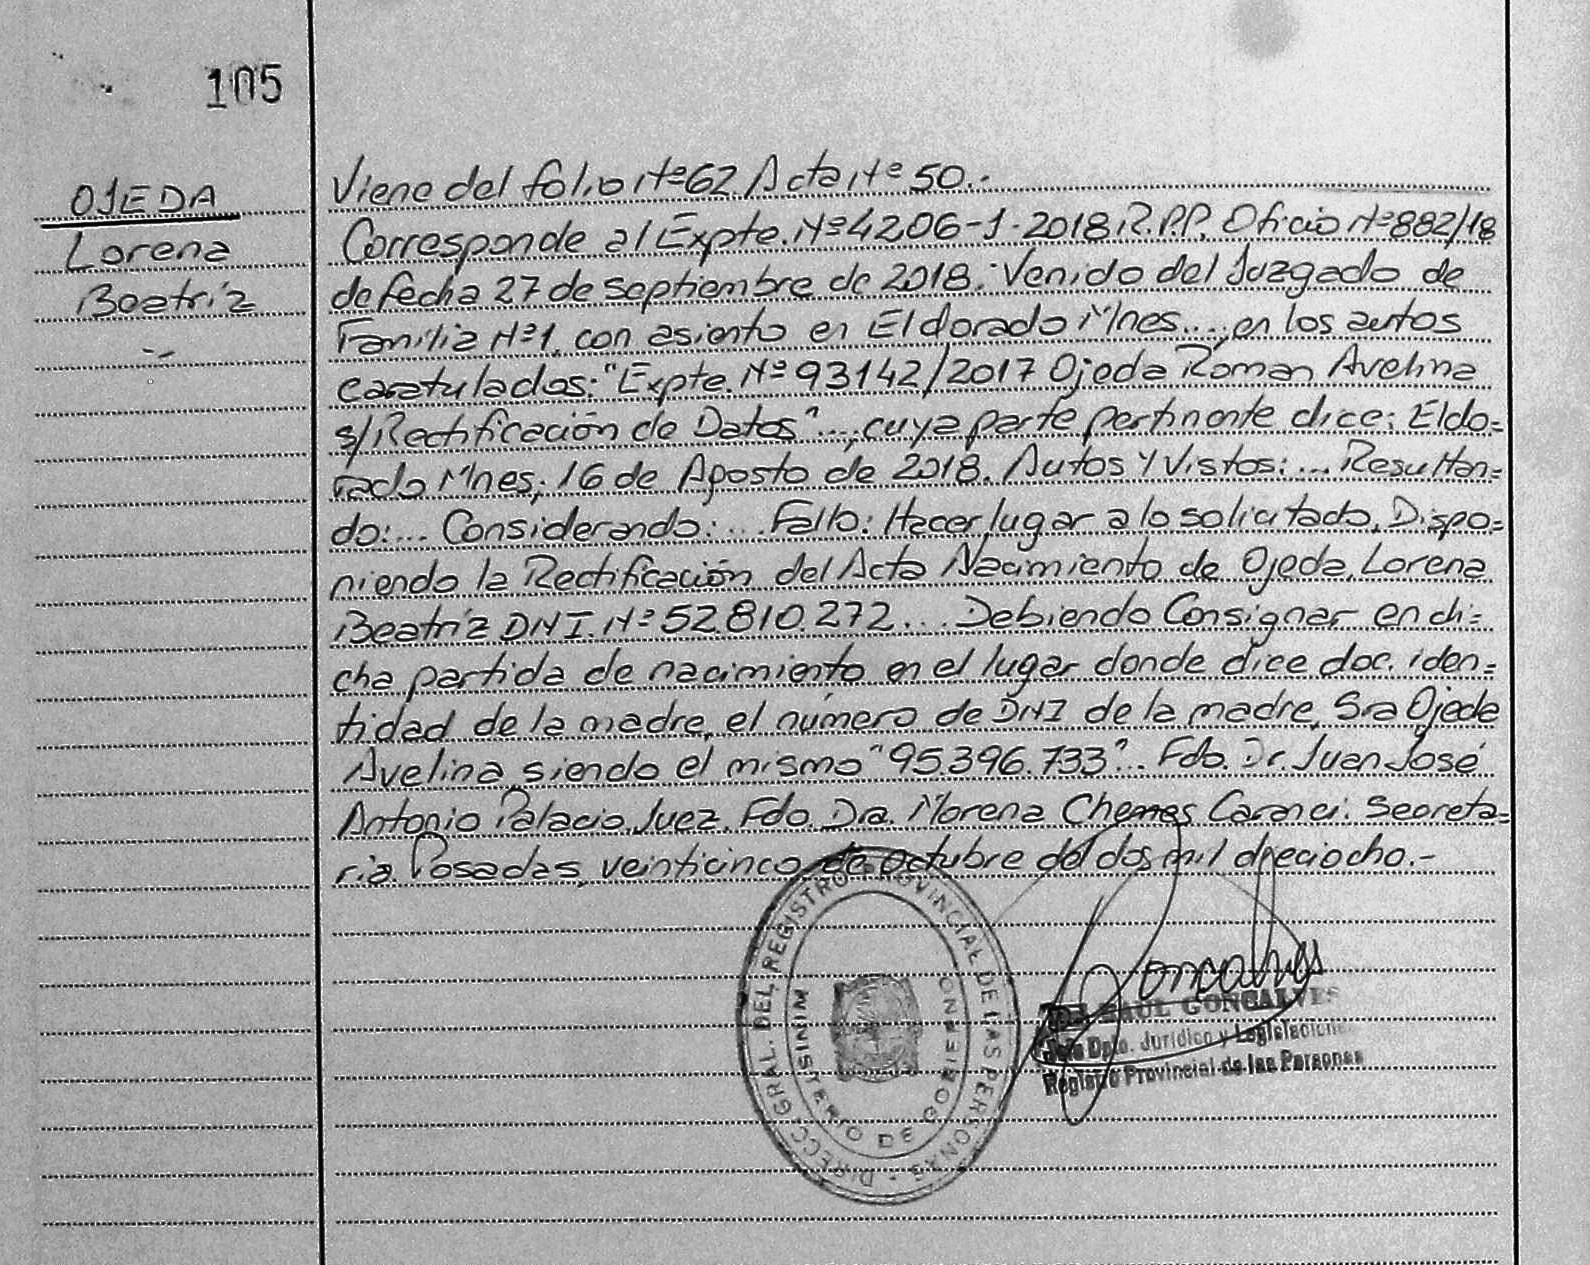 105
OJEDA
Lorena
Beatríz
Viene del folio Nº 62 Acta Nº 50.-
Corresponde al Expte. Nº 4206-1-2018 R.P.P. Oficio Nº 882/18
de fecha 27 de septiembre de 2018. Venido del Juzgado de
Familia Nº 1, con asiento en Eldorado Mnes..., en los autos
caratulados: "Expte. Nº 93142/2017 Ojeda Roman Avelina
s/Rectificación de Datos"..., cuya parte pertinente dice: Eldo=
rado Mnes, 16 de Agosto de 2018. Autos y Vistos:... Resultan=
do:... Considerando:... Fallo: Hacer lugar a lo solicitado. Dispo=
niendo la Rectificación del Acta Nacimiento de Ojeda, Lorena
Beatríz DNI. Nº 52.810.272... Debiendo Consignar en di=
cha partida de nacimiento en el lugar donde dice doc. iden=
tidad de la madre, el número de DNI de la madre, Sra Ojeda
Avelina siendo el mismo "95.396.733". Fdo. Dr. Juan José
Antonio Palacio Juez. Fdo. Dra. Morena Chemes Caranci. Secreta=
ria. Posadas, veinticinco de octubre del dos mil dieciocho.-
DIRECC. GRAL. DEL REGISTRO PROVINCIAL DE LAS PERSONAS
MINISTERIO DE GOBIERNO
Goncalves
RAUL GONCALVES
Jefe Dpto. Jurídico y Legislacione
Registro Provincial de las Personas